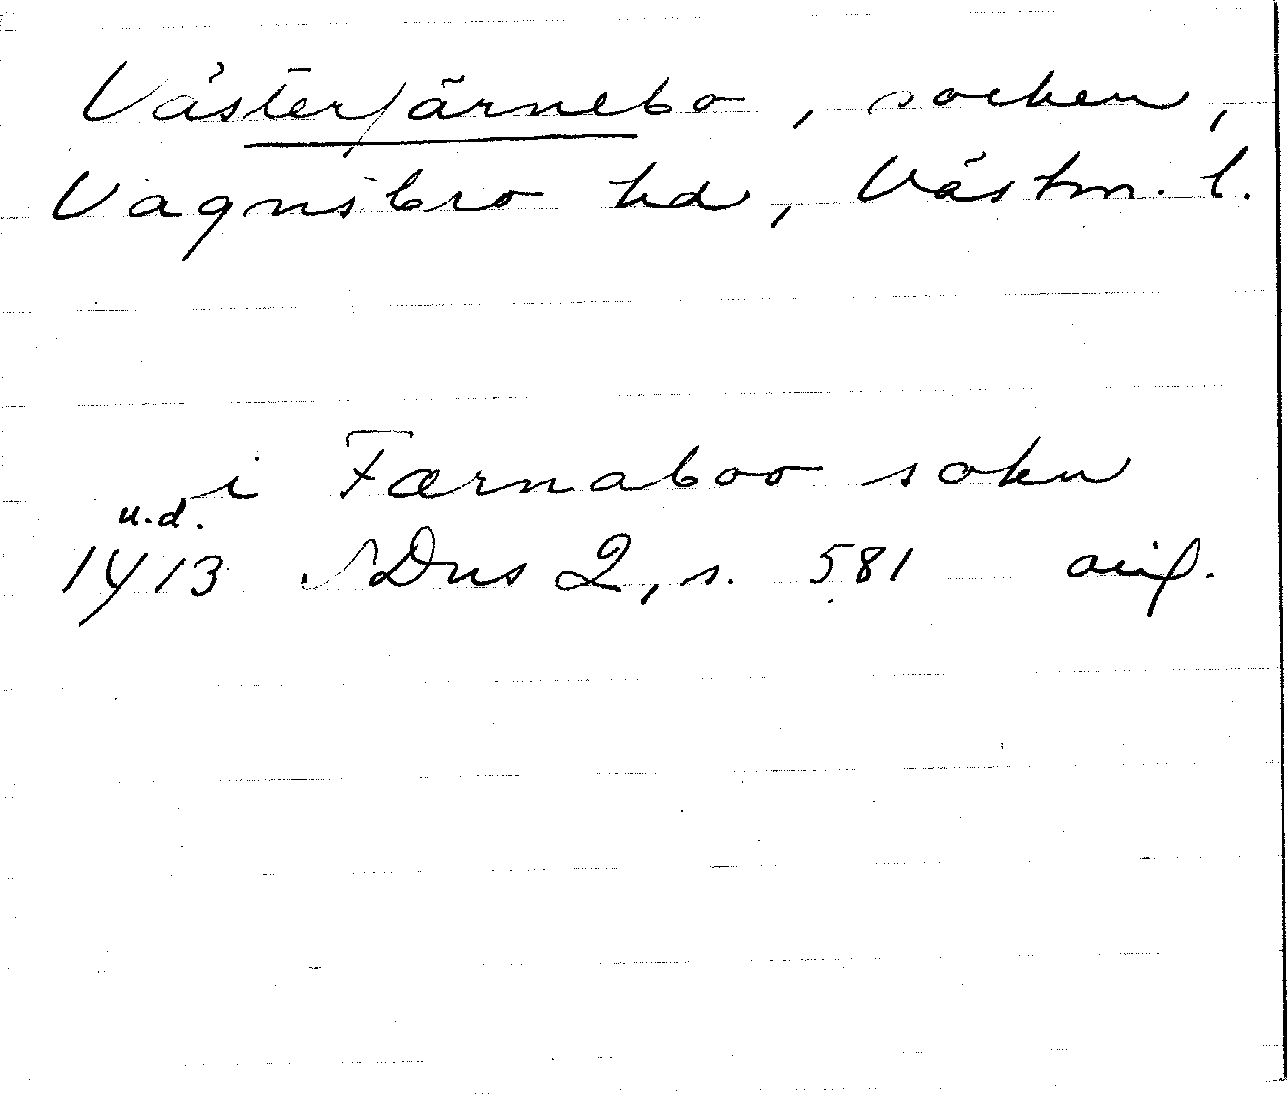 Västerfärnebo, socken,
Vagnsbro hd, Västm. l.
i Færnaboo sokn
u.d.
1413 SDns 2, s. 581 orig.